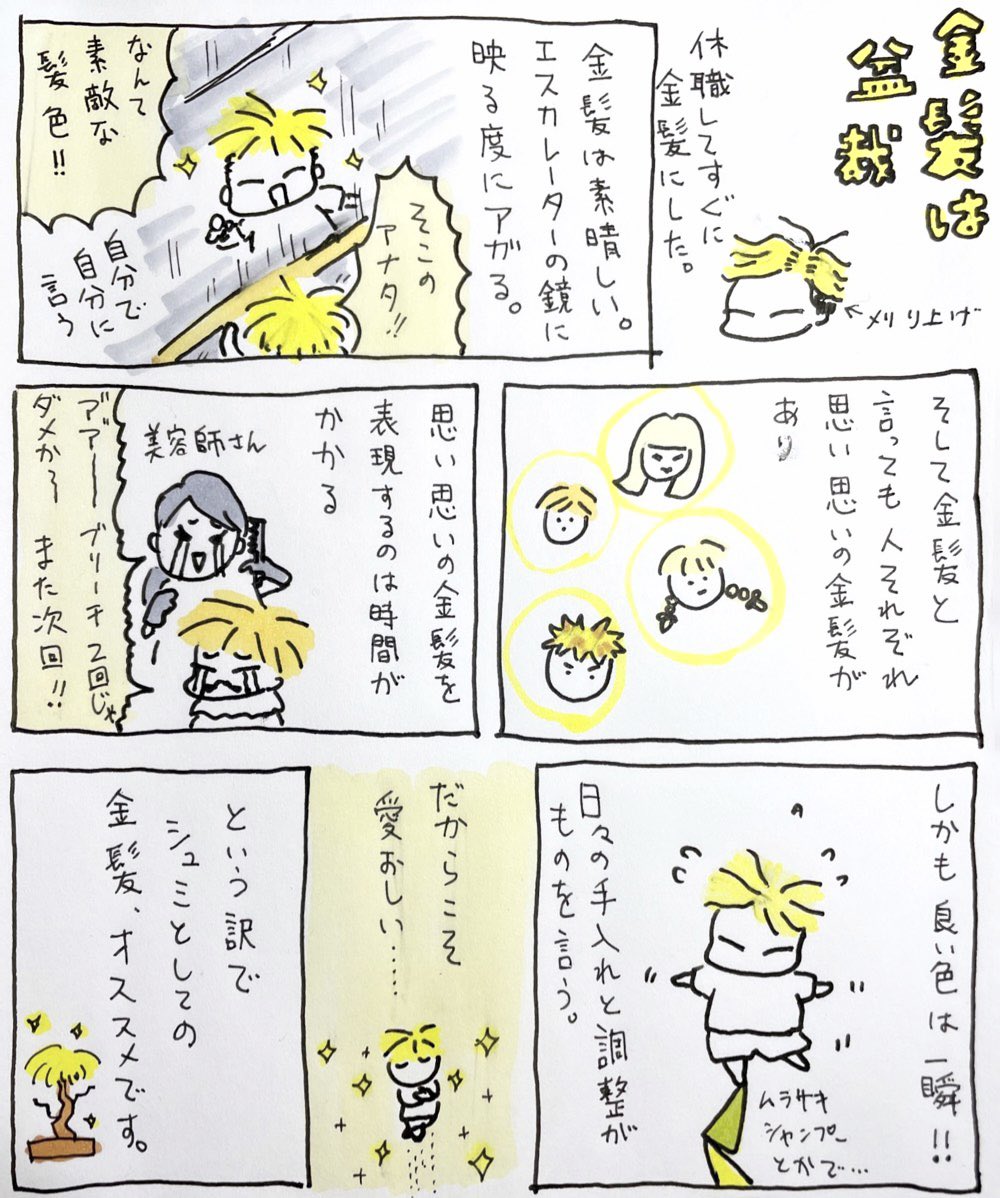 金髪は
盆栽
休職してすぐに
金髪にした。
←メリり上げ
金髪は素晴しい。
エスカレーターの鏡に
映る度にアガる。
そこの
アナタ!!
なんて
素敵な
髪色!!
自分で
自分に
言う
そして金髪と
言っても人それぞれ
思い思いの金髪が
あり
思い思いの金髪を
表現するのは時間が
かかる
美容師さん
ア゛ア゛ーーブリーチ2回じゃ
ダメかーーまた次回!!
しかも良い色は一瞬!!
日々の手入れと調整が
ものを言う。
ムラサキ
シャンプー
とかで…
だからこそ
愛おしい……
という訳で
シュミとしての
金髪、オススメです。